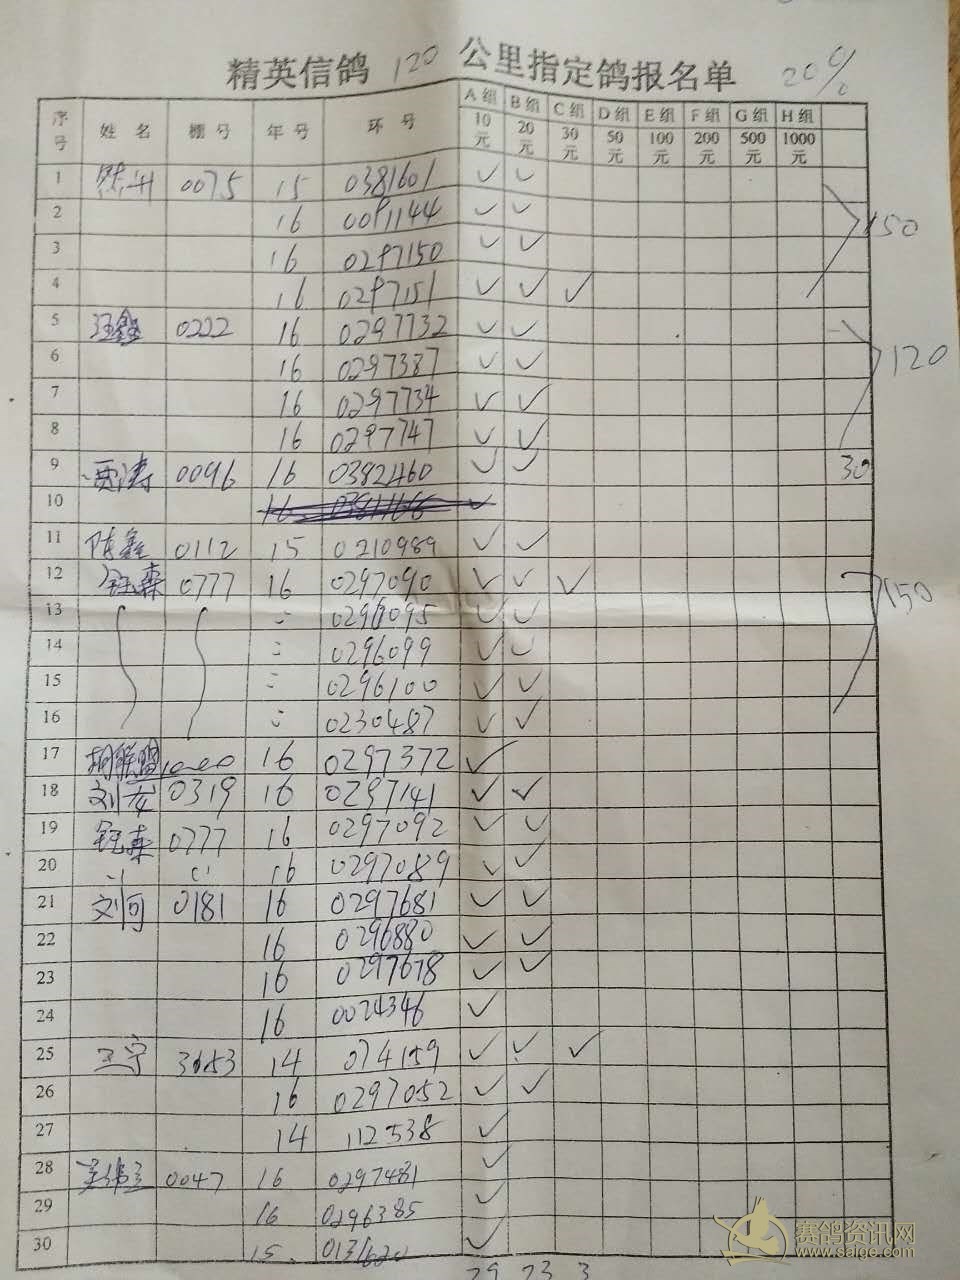 精英信鸽 120 公里指定鸽报名单 20%
序号 姓名 棚号 年号 环号 A组 10元 B组 20元 C组 30元 D组 50元 E组 100元 F组 200元 G组 500元 H组 1000元
1 0075 15 0381601 ✓ ✓
2 16 0091144 ✓ ✓
3 16 0297150 ✓ ✓
4 16 0297151 ✓ ✓ ✓ 150
5 汪鑫 0222 16 0297732 ✓ ✓
6 16 0297387 ✓ ✓ 120
7 16 0297734 ✓ ✓
8 16 0297747 ✓ ✓
9 贾涛 0096 16 0382460 ✓ ✓ 30
10 16 ✓
11 陈鑫 0112 15 0210989 ✓ ✓
12 森 0777 16 0297090 ✓ ✓ ✓ 150
13 〃 0296095 ✓ ✓
14 〃 0296099 ✓ ✓
15 〃 0296100 ✓ ✓
16 〃 0230487 ✓ ✓
17 胡联盟 16 0297372 ✓
18 刘 0319 16 0297141 ✓ ✓
19 森 0777 16 0297092 ✓ ✓
20 〃 〃 16 0297089 ✓ ✓
21 刘河 0181 16 0297681 ✓ ✓
22 16 0296880 ✓ ✓
23 16 0297678 ✓ ✓
24 16 0024346 ✓
25 王宁 14 074159 ✓ ✓ ✓
26 16 0297052 ✓ ✓
27 14 112538 ✓
28 0047 16 0297481 ✓
29 16 0296385 ✓
30 15 ✓
29 23 3
赛鸽资讯网
www.saige.com